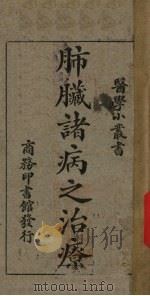 醫學小叢書
肺臟諸病之治療
商務印書館發行